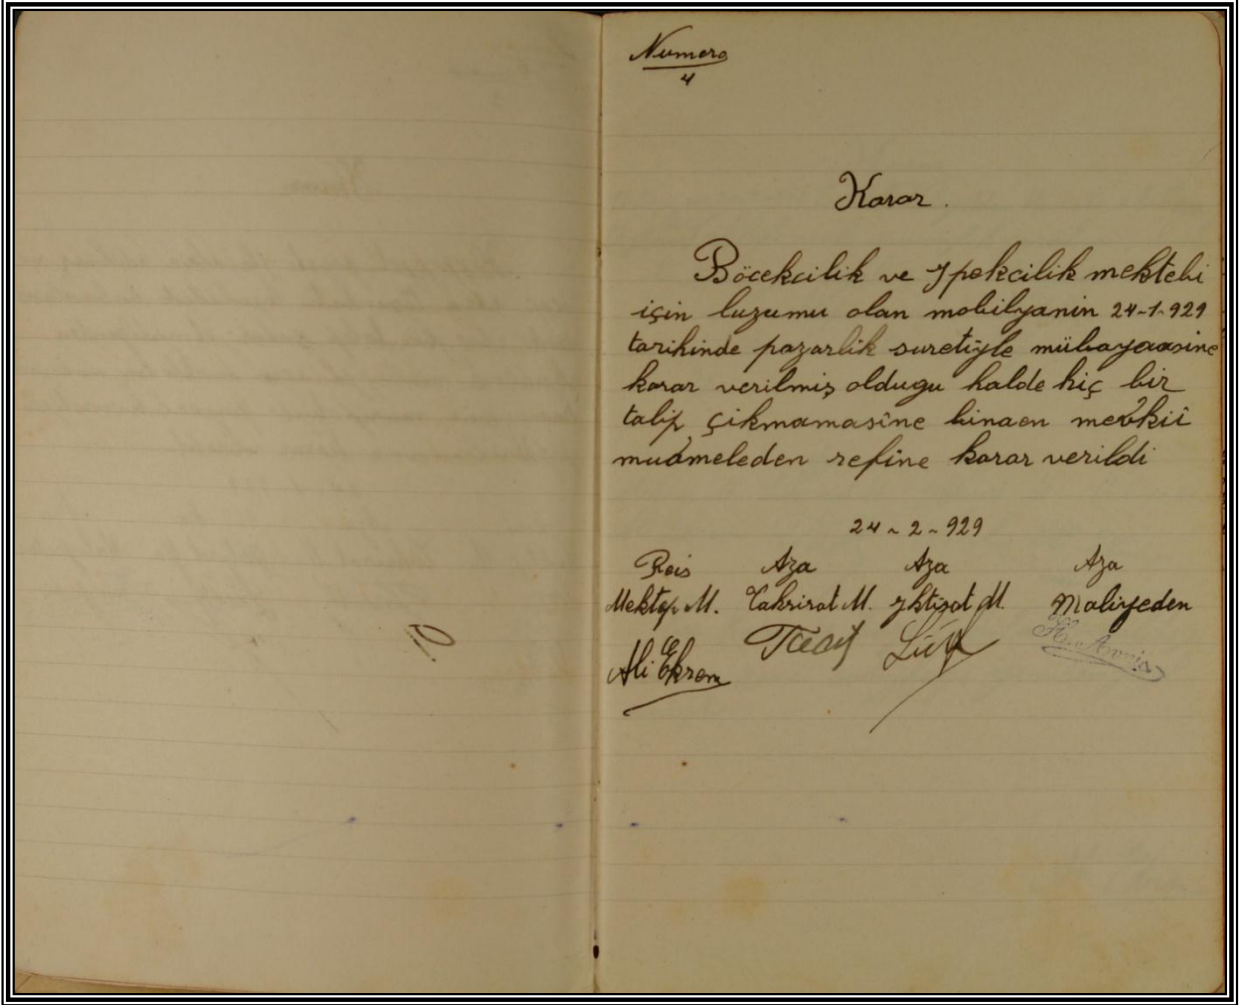 Numero
4
Karar.
Böcekcilik ve Ypekcilik mektebi
için luzumu olan mobilyanin 24-1-929
tarihinde pazarlik suretiyle mübayaasine
karar verilmiş oldugu halde hiç bir
talip çikmamasîne binaen mevkii
muâmeleden refine karar verildi
24-2-929
Reis Aza Aza Aza
Mektep M. Tahrirat M. Yktisat M. Maliyeden
Ali Ekrem